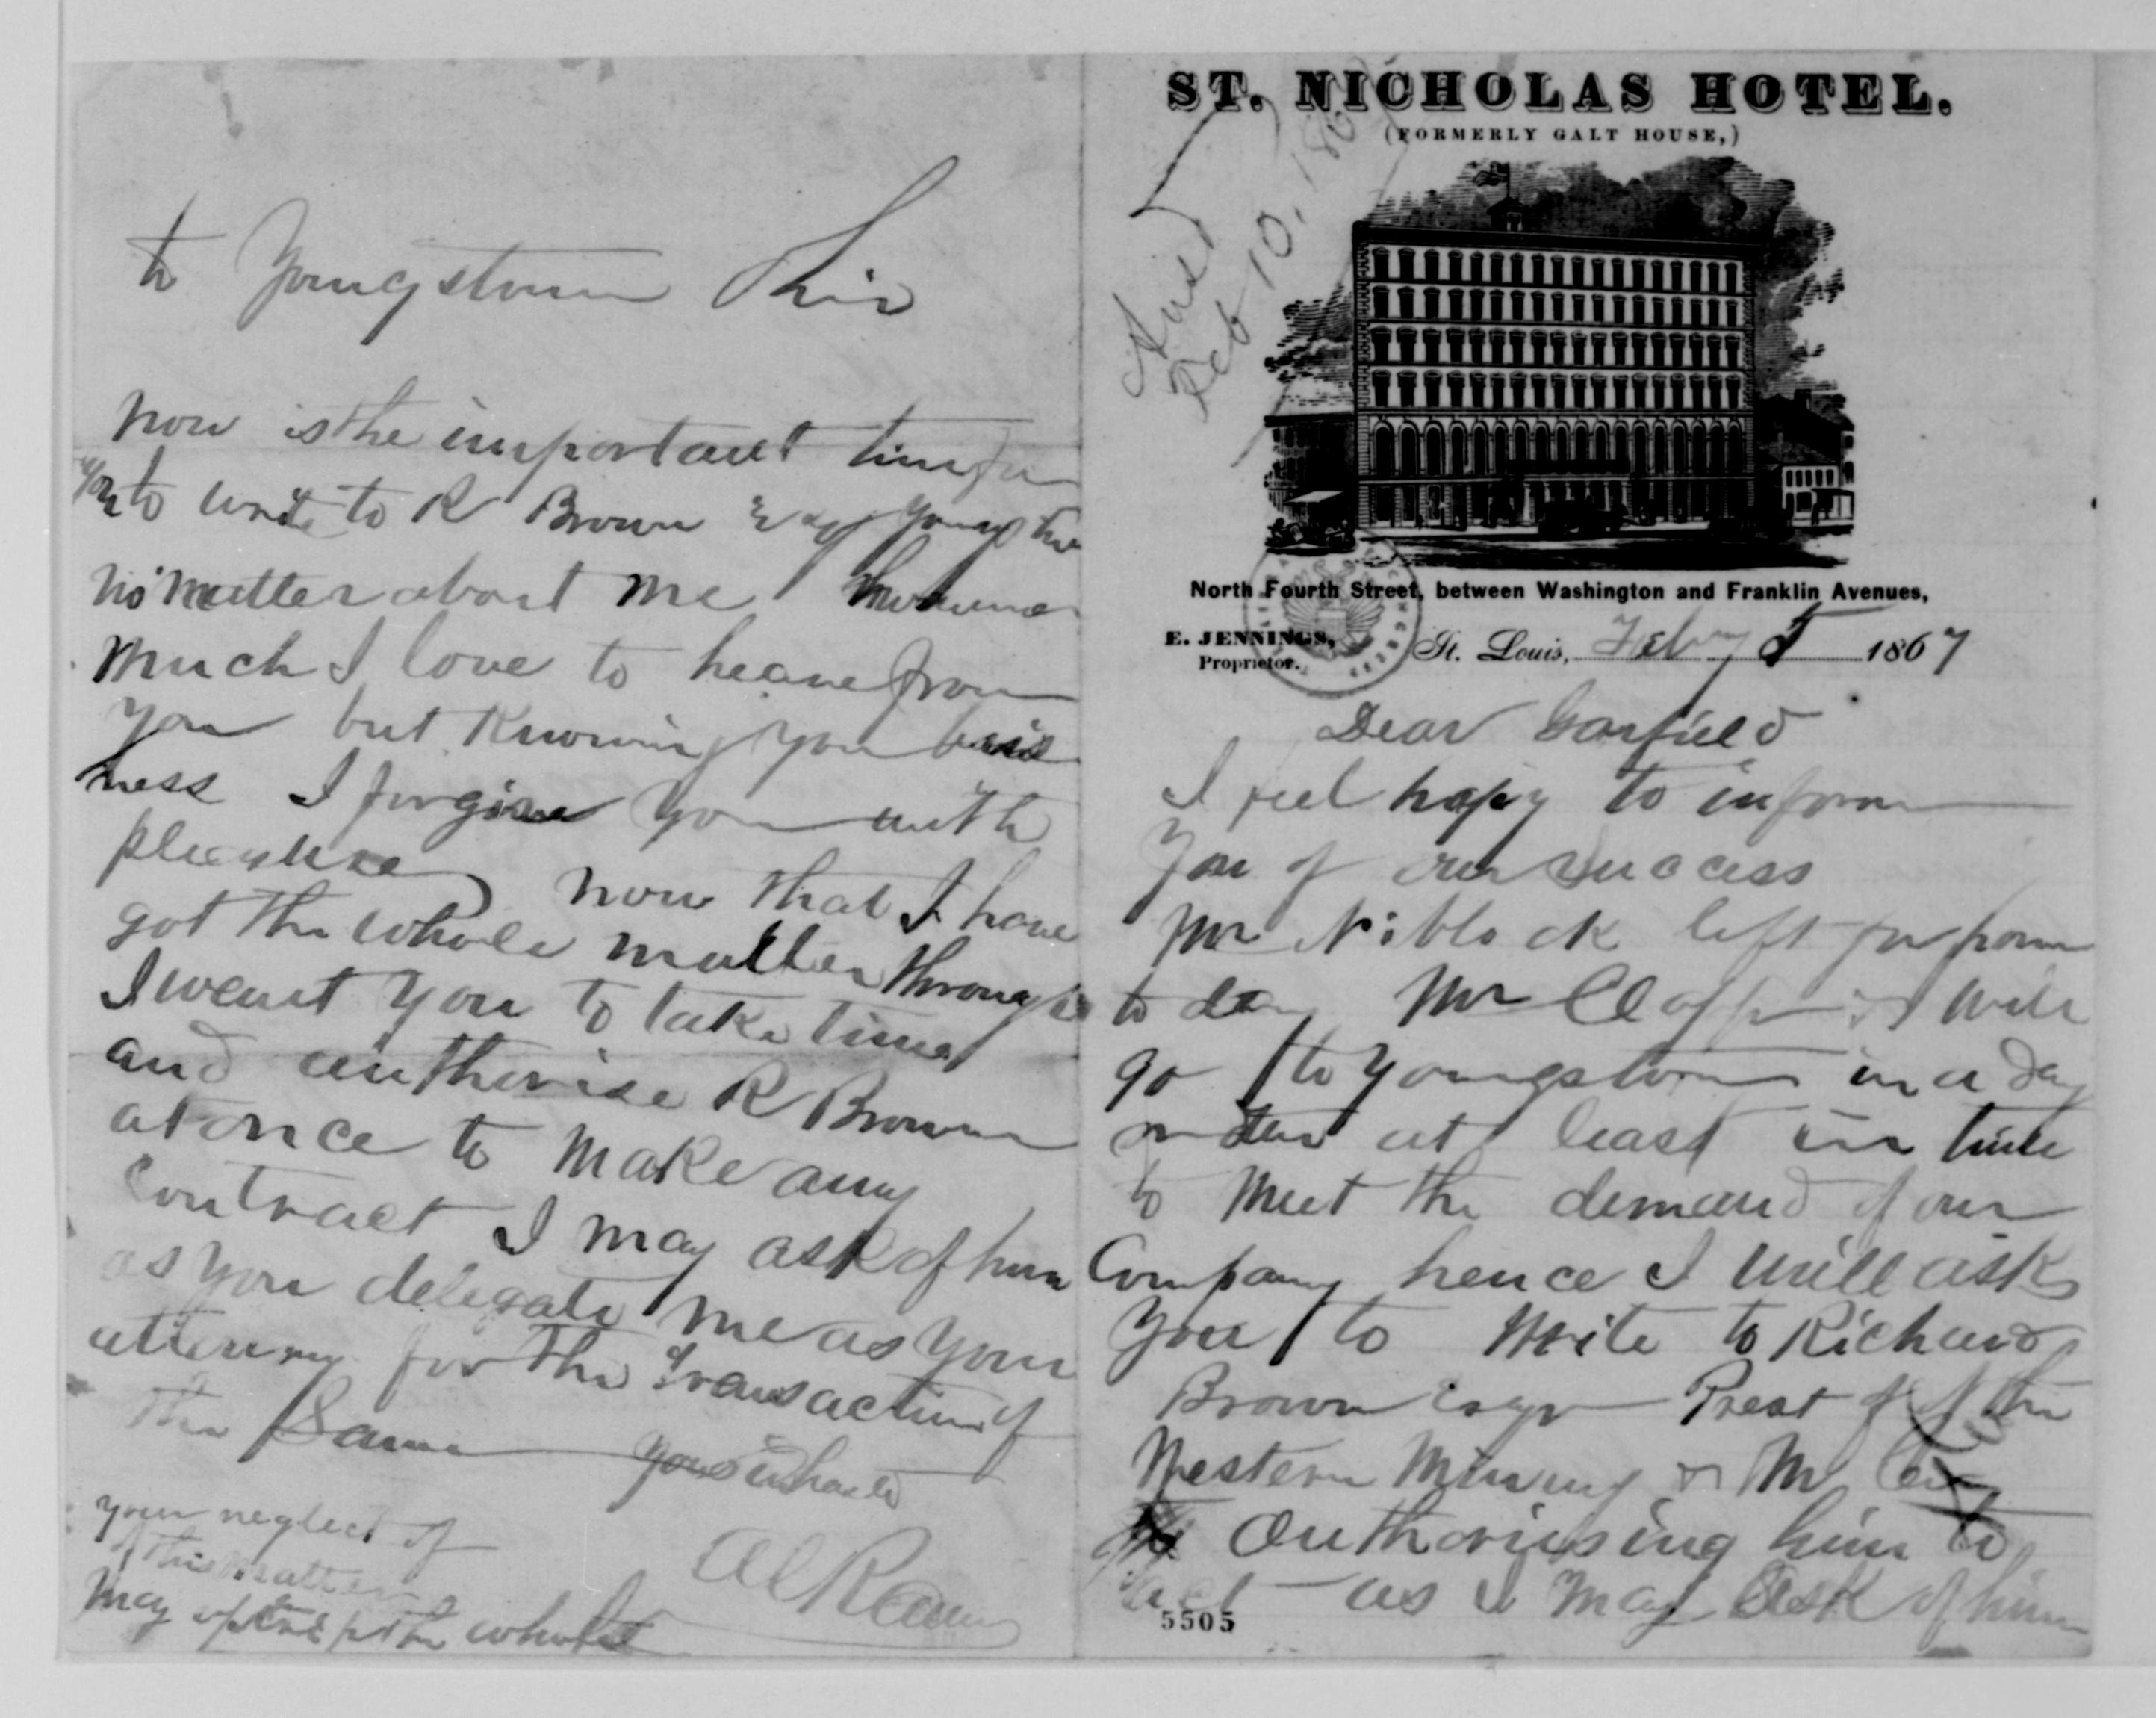 ST. NICHOLAS HOTEL.
(FORMERLY GALT HOUSE,)
Feb 10, 186
North Fourth Street, between Washington and Franklin Avenues,
E. JENNINGS,
Proprietor.
St. Louis, Feby 5 1867
Dear Garfield
I feel hapy to inform
you of our success
Mr Niblock left for home
to day Mr will
go to Youngstown in a day
or two at least in time
to meet the demand of our
Company hence I will ask
you to write to Richard
Brown Esqr Prest of the
Western Mining & M
authorising him to
act as I may ask of him
5505
to Youngstown Ohio
now is the important time for
you to write to R Brown Esqr
no matter about me
much I love to heare from
you but knowing you buis
ness I forgive you with
pleasure now that I have
got the whole matter through
I want you to take time
and authorise R Brown
at once to make any
contract I may ask of him
as you delegate me as your
attorney for the transaction of
the Same
your neglect of
this matter
may the whole